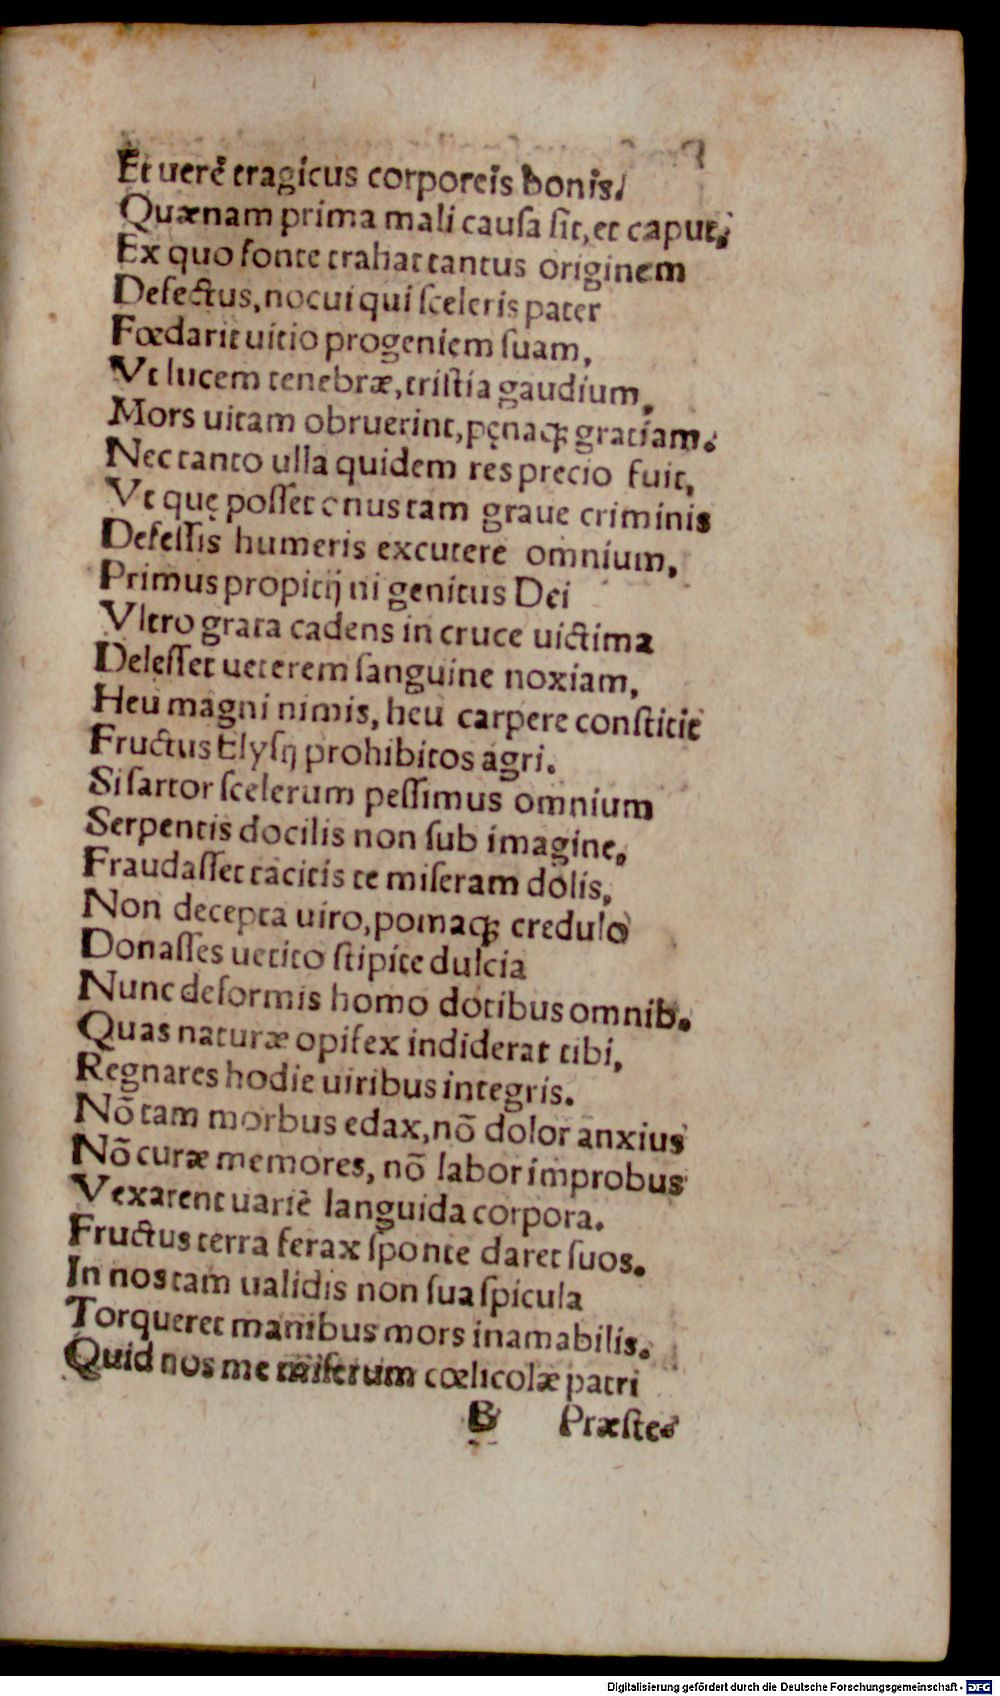 Et uerè tragicus corporeis bonis.
Quænam prima mali causa sit, et caput,
Ex quo fonte trahat tantus originem
Defectus, nocui qui sceleris pater
Fœdarit uitio progeniem suam,
Vt lucem tenebræ, tristia gaudium,
Mors uitam obruerint, pęnaqꝫ gratiam.
Nec tanto ulla quidem res precio fuit,
Vt quę posset onus tam graue criminis
Defessis humeris excutere omnium,
Primus propitij ni genitus Dei
Vltro grata cadens in cruce uictima
Delesset ueterem sanguine noxiam,
Heu magni nimis, heu carpere constitit
Fructus Elysij prohibitos agri.
Si sartor scelerum pessimus omnium
Serpentis docilis non sub imagine,
Fraudasset tacitis te miseram dolis,
Non decepta uiro, pomaqꝫ credulo
Donasses uetito stipite dulcia
Nunc deformis homo dotibus omnib.
Quas naturæ opifex indiderat tibi,
Regnares hodie uiribus integris.
Nō tam morbus edax, nō dolor anxius
Nō curæ memores, nō labor improbus
Vexarent uariè languida corpora.
Fructus terra ferax sponte daret suos.
In nos tam ualidis non sua spicula
Torqueret manibus mors inamabilis.
Quid nos me miserum cœlicolæ patri
B Præste
Digitalisierung gefördert durch die Deutsche Forschungsgemeinschaft - DFG